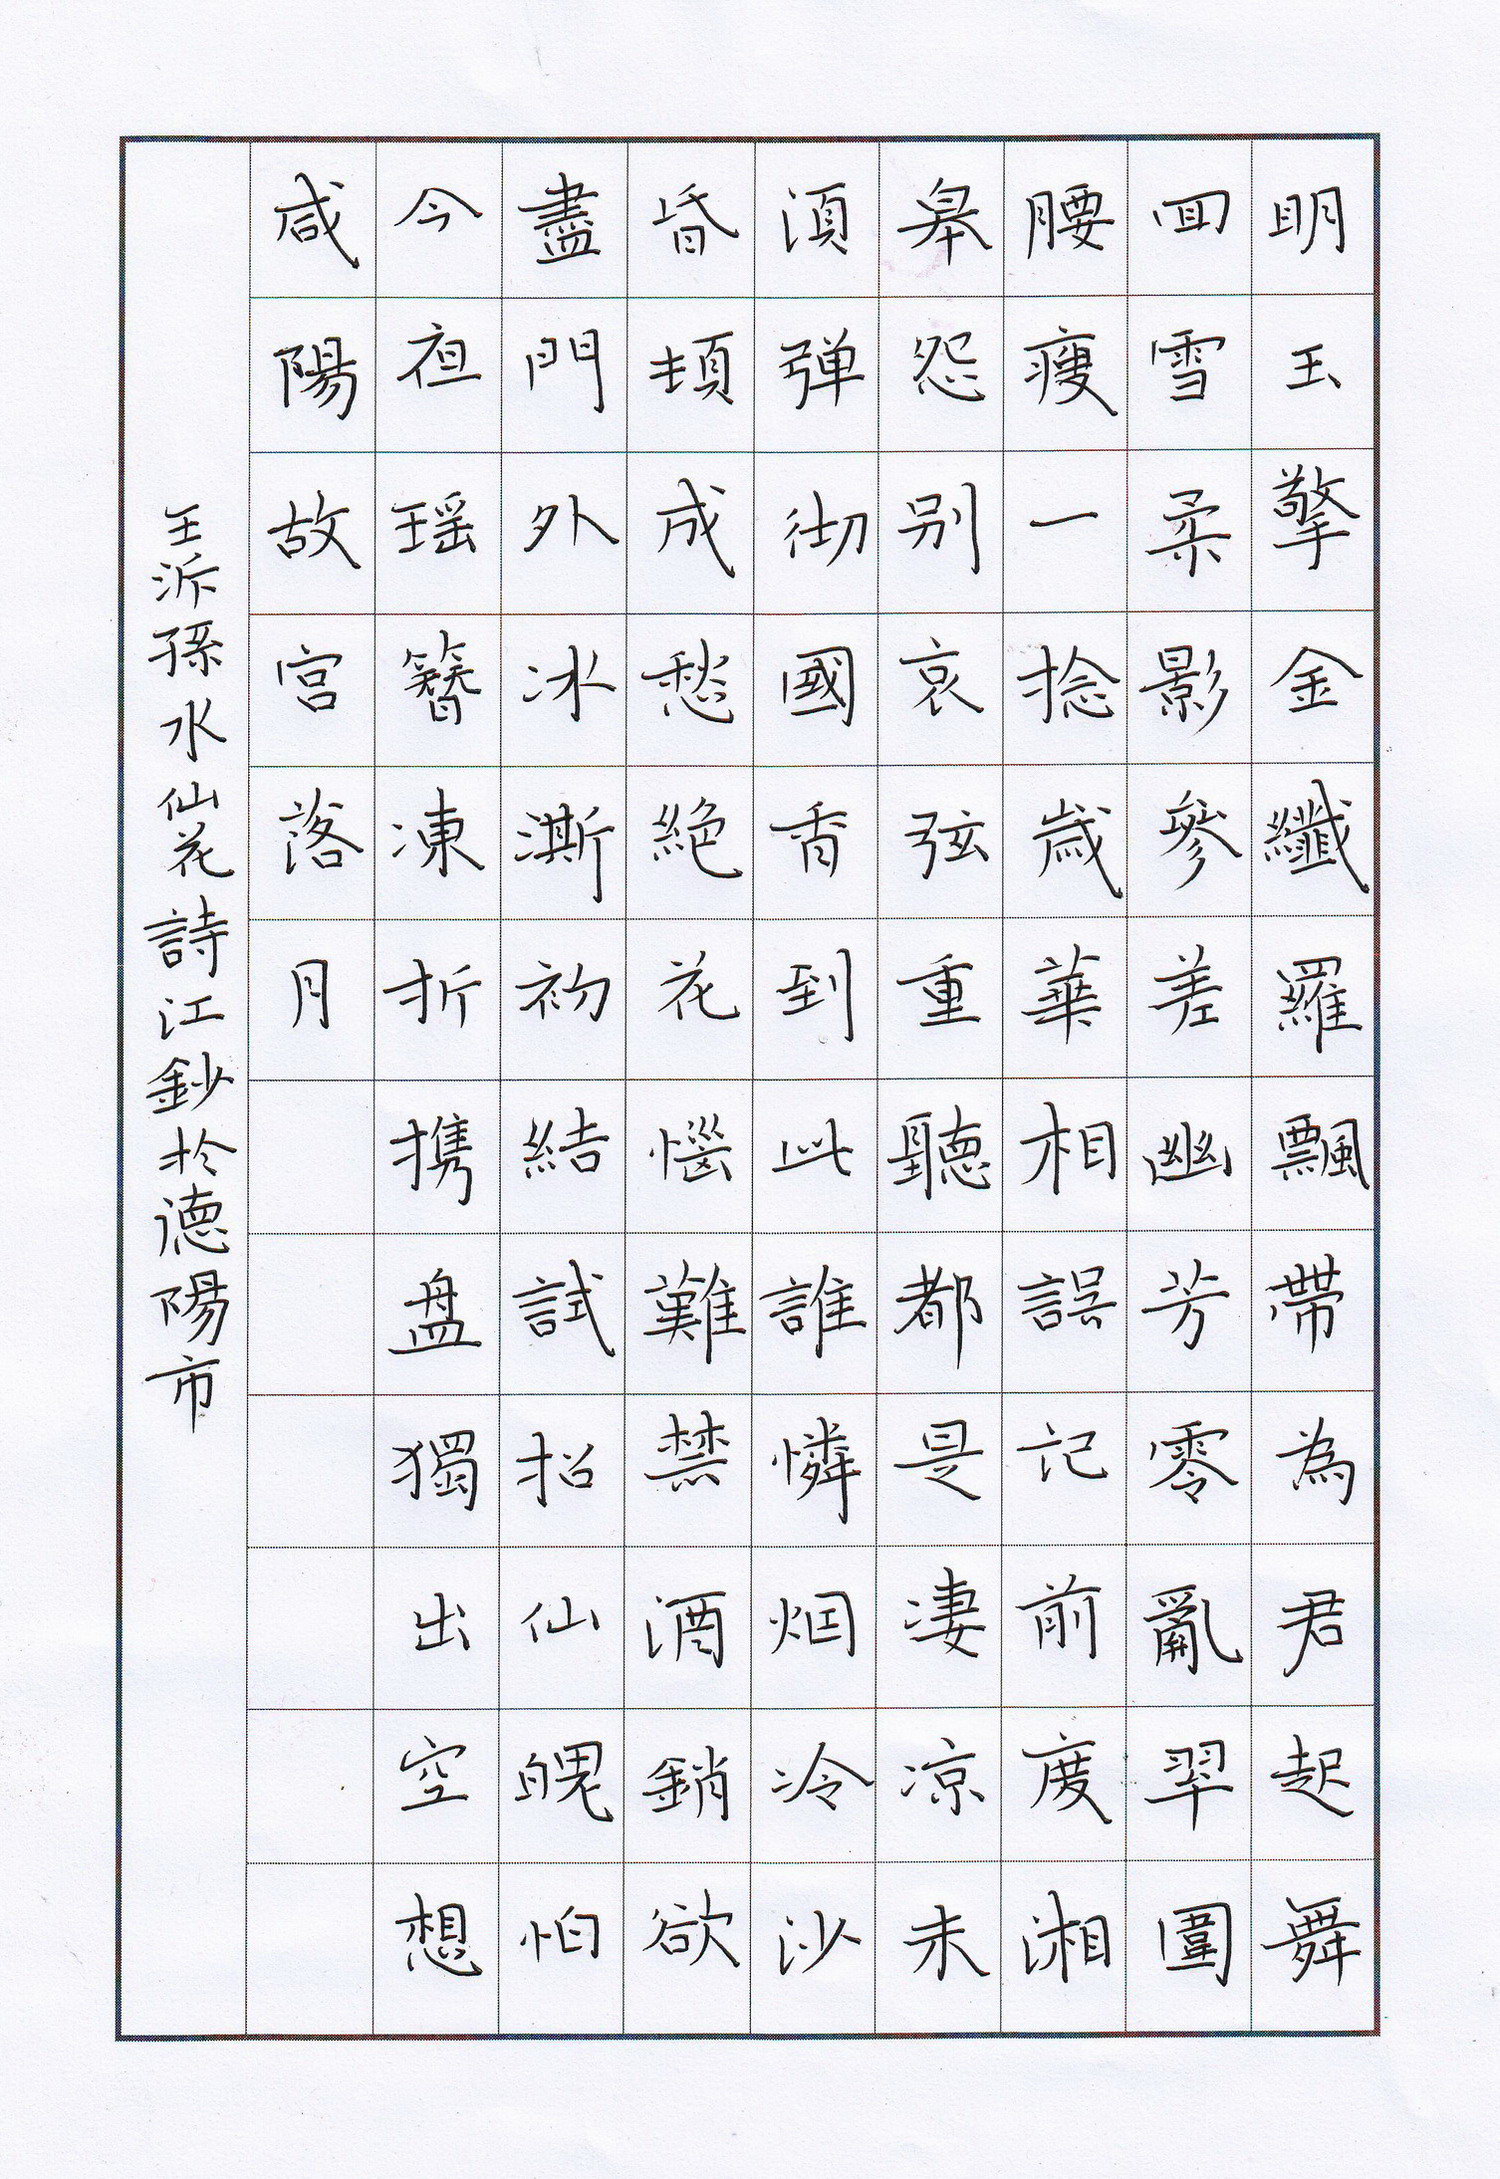 明玉擎金纖羅飄帶為君起舞
囬雪柔影參差幽芳零亂翠圍
腰瘦一捻歲華相誤記前度湘
皋怨别哀弦重聽都是凄凉未
須弹彻國香到此誰憐烟冷沙
昏頓成愁絶花惱難禁酒銷欲
盡門外冰澌初結試招仙魄怕
今夜瑶簪凍折携盘獨出空想
咸陽故宫落月
王沂孫水仙花詩江鈔於德陽市